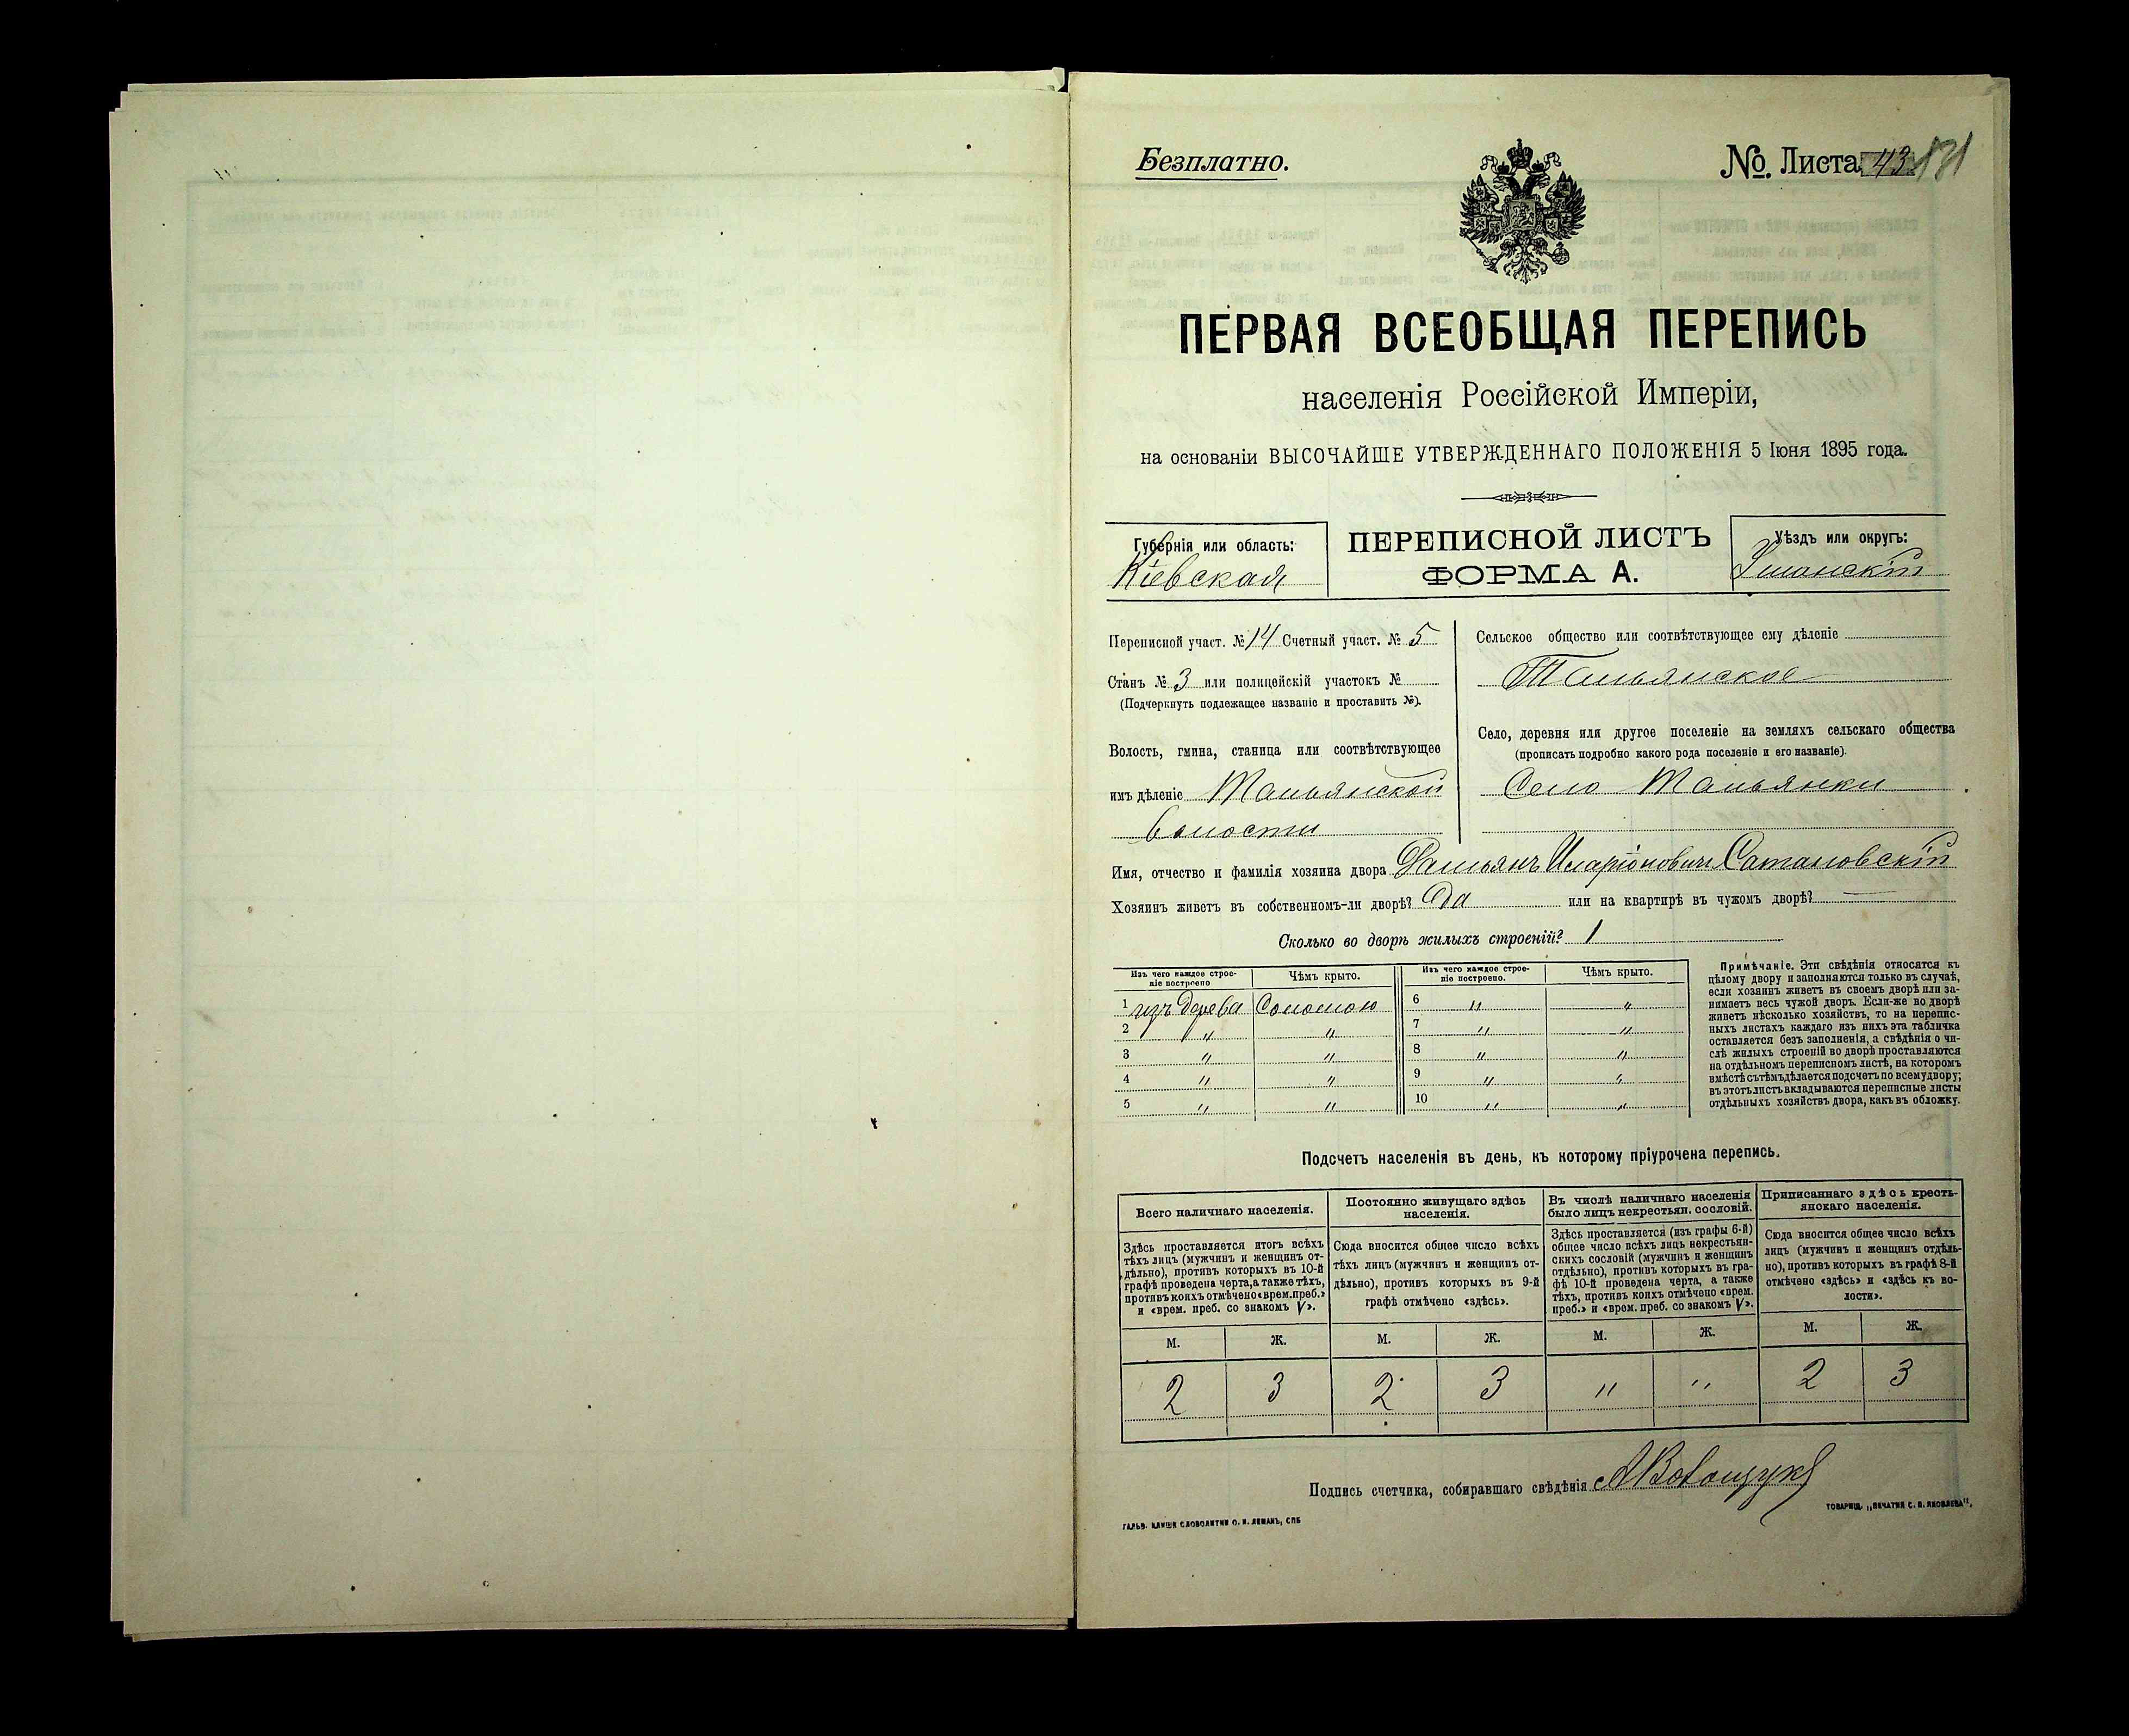 Безплатно.
№. Листа 43
ПЕРВАЯ ВСЕОБЩАЯ ПЕРЕПИСЬ
населенія Россійской Имперіи,
на основаніи ВЫСОЧАЙШЕ УТВЕРЖДЕННАГО ПОЛОЖЕНІЯ 5 Іюня 1895 года.
Губернія или область:
Кіевская
ПЕРЕПИСНОЙ ЛИСТЪ
ФОРМА А.
Уѣздъ или округъ:
Уманскій
Переписной участ. № 14 Счетный участ. № 5
Станъ № 3 или полицейскій участокъ №
(Подчеркнуть подлежащее названіе и проставить №).
Волость, гмина, станица или соотвѣтствующее
имъ дѣленіе Тальянской
волости
Сельское общество или соотвѣтствующее ему дѣленіе
Тальянское
Село, деревня или другое поселеніе на земляхъ сельскаго общества
(прописать подробно какого рода поселеніе и его названіе).
Село Тальянки
Имя, отчество и фамилія хозяина двора Дамьянъ Иларіоновичъ Сатановскій
Хозяинъ живетъ въ собственномъ-ли дворѣ? Да или на квартирѣ въ чужомъ дворѣ? —
Сколько во дворѣ жилыхъ строеній? 1
Изъ чего каждое строе-
ніе построено
Чѣмъ крыто.
Изъ чего каждое строе-
ніе построено.
Чѣмъ крыто.
1 изъ дерева Соломою 6 " "
2 " " 7 " "
3 " " 8 " "
4 " " 9 " "
5 " " 10 " "
Примѣчаніе. Эти свѣдѣнія относятся къ
цѣлому двору и заполняются только въ случаѣ,
если хозяинъ живетъ въ своемъ дворѣ или за-
нимаетъ весь чужой дворъ. Если-же во дворѣ
живетъ нѣсколько хозяйствъ, то на перепис-
ныхъ листахъ каждаго изъ нихъ эта табличка
оставляется безъ заполненія, а свѣдѣнія о чи-
слѣ жилыхъ строеній во дворѣ проставляются
на отдѣльномъ переписномъ листѣ, на которомъ
вмѣстѣ съ тѣмъ дѣлается подсчетъ по всему двору;
въ этотъ листъ вкладываются переписные листы
отдѣльныхъ хозяйствъ двора, какъ въ обложку.
Подсчетъ населенія въ день, къ которому пріурочена перепись.
Всего наличнаго населенія.
Здѣсь проставляется итогъ всѣхъ
тѣхъ лицъ (мужчинъ и женщинъ от-
дѣльно), противъ которыхъ въ 10-й
графѣ проведена черта, а также тѣхъ,
противъ коихъ отмѣчено «врем. преб.»
и «врем. преб. со знакомъ V».
Постоянно живущаго здѣсь
населенія.
Сюда вносится общее число всѣхъ
тѣхъ лицъ (мужчинъ и женщинъ от-
дѣльно), противъ которыхъ въ 9-й
графѣ отмѣчено «здѣсь».
Въ числѣ наличнаго населенія
было лицъ некрестьян. сословій.
Здѣсь проставляется (изъ графы 6-й)
общее число всѣхъ лицъ некрестьян-
скихъ сословій (мужчинъ и женщинъ
отдѣльно), противъ которыхъ въ гра-
фѣ 10-й проведена черта, а также
тѣхъ, противъ коихъ отмѣчено «врем.
преб.» и «врем. преб. со знакомъ V».
Приписаннаго здѣсь кресть-
янскаго населенія.
Сюда вносится общее число всѣхъ
лицъ (мужчинъ и женщинъ отдѣль-
но), противъ которыхъ въ графѣ 8-й
отмѣчено «здѣсь» и «здѣсь къ во-
лости».
М. Ж. М. Ж. М. Ж. М. Ж.
2 3 2 3 " " 2 3
Подпись счетчика, собиравшаго свѣдѣнія
ГАЛЬВ. КЛИШЕ СЛОВОЛИТНИ О. И. ЛЕМАНЪ, СПБ
ТОВАРИЩ. „ПЕЧАТНЯ С. П. ЯКОВЛЕВА",